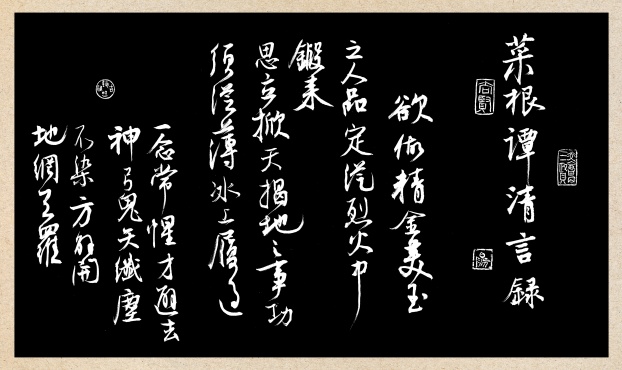 菜根谭清言録
欲做精金美玉
之人品定從烈火中
鍛來
思立掀天揭地之事功
須從薄冰上履過
一念常惺才避去
神弓鬼矢纖塵
不染方解開
地網天羅